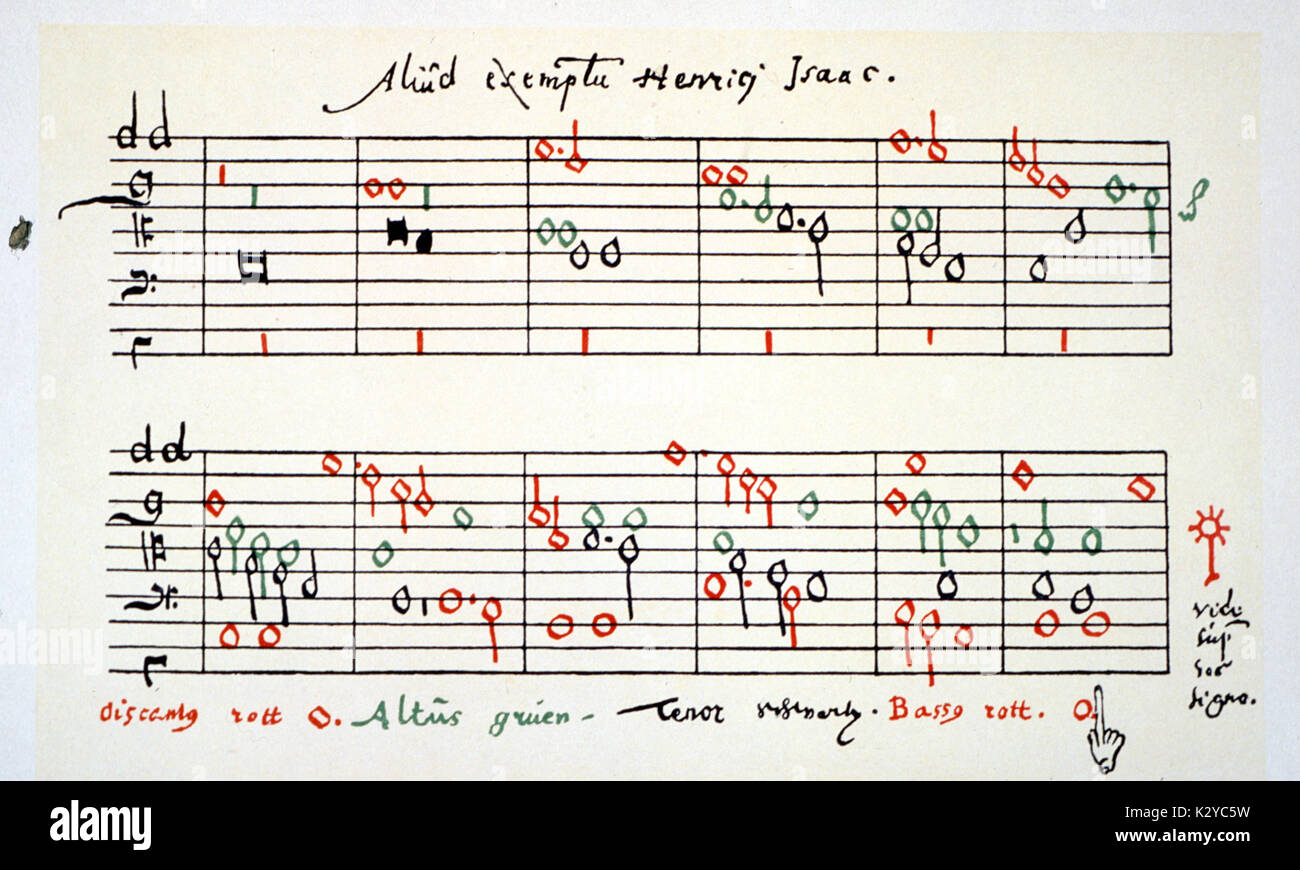 Aliud exemplū Henricj Isaac.
dd
g
Γ
dd
g
Γ
discantꝰ rott Altūs grüen - Tenor schwartz. Bassꝰ rott.
vide
sup
signo.
alamy
Image ID: K2YC5W
www.alamy.com